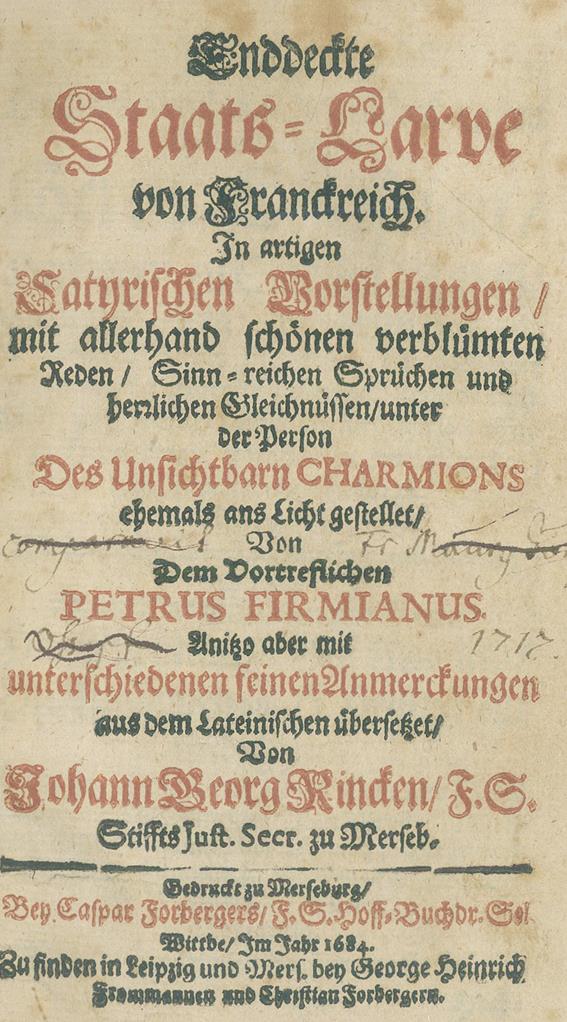 Enddeckte
Staats-Larve
von Franckreich.
In artigen
Satyrischen Vorstellungen /
mit allerhand schönen verblümten
Reden / Sinn-reichen Sprüchen und
herrlichen Gleichnüssen/unter
der Person
Des Unsichtbarn CHARMIONS
ehemals ans Licht gestellet/
comparavit Von Fr Maury
Dem Vortreflichen
PETRUS FIRMIANUS.
Anitzo aber mit 1717.
unterschiedenen feinen Anmerckungen
aus dem Lateinischen übersetzet/
Von
Johann Georg Rincken/ F. S.
Stiffts Just. Secr. zu Merseb.
Gedruckt zu Merseburg/
Bey Caspar Forbergers/ F. S. Hoff-Buchdr. Sel.
Wittbe/ Im Jahr 1684.
Zu finden in Leipzig und Mers. bey George Heinrich
Frommannen und Christian Forbergern.